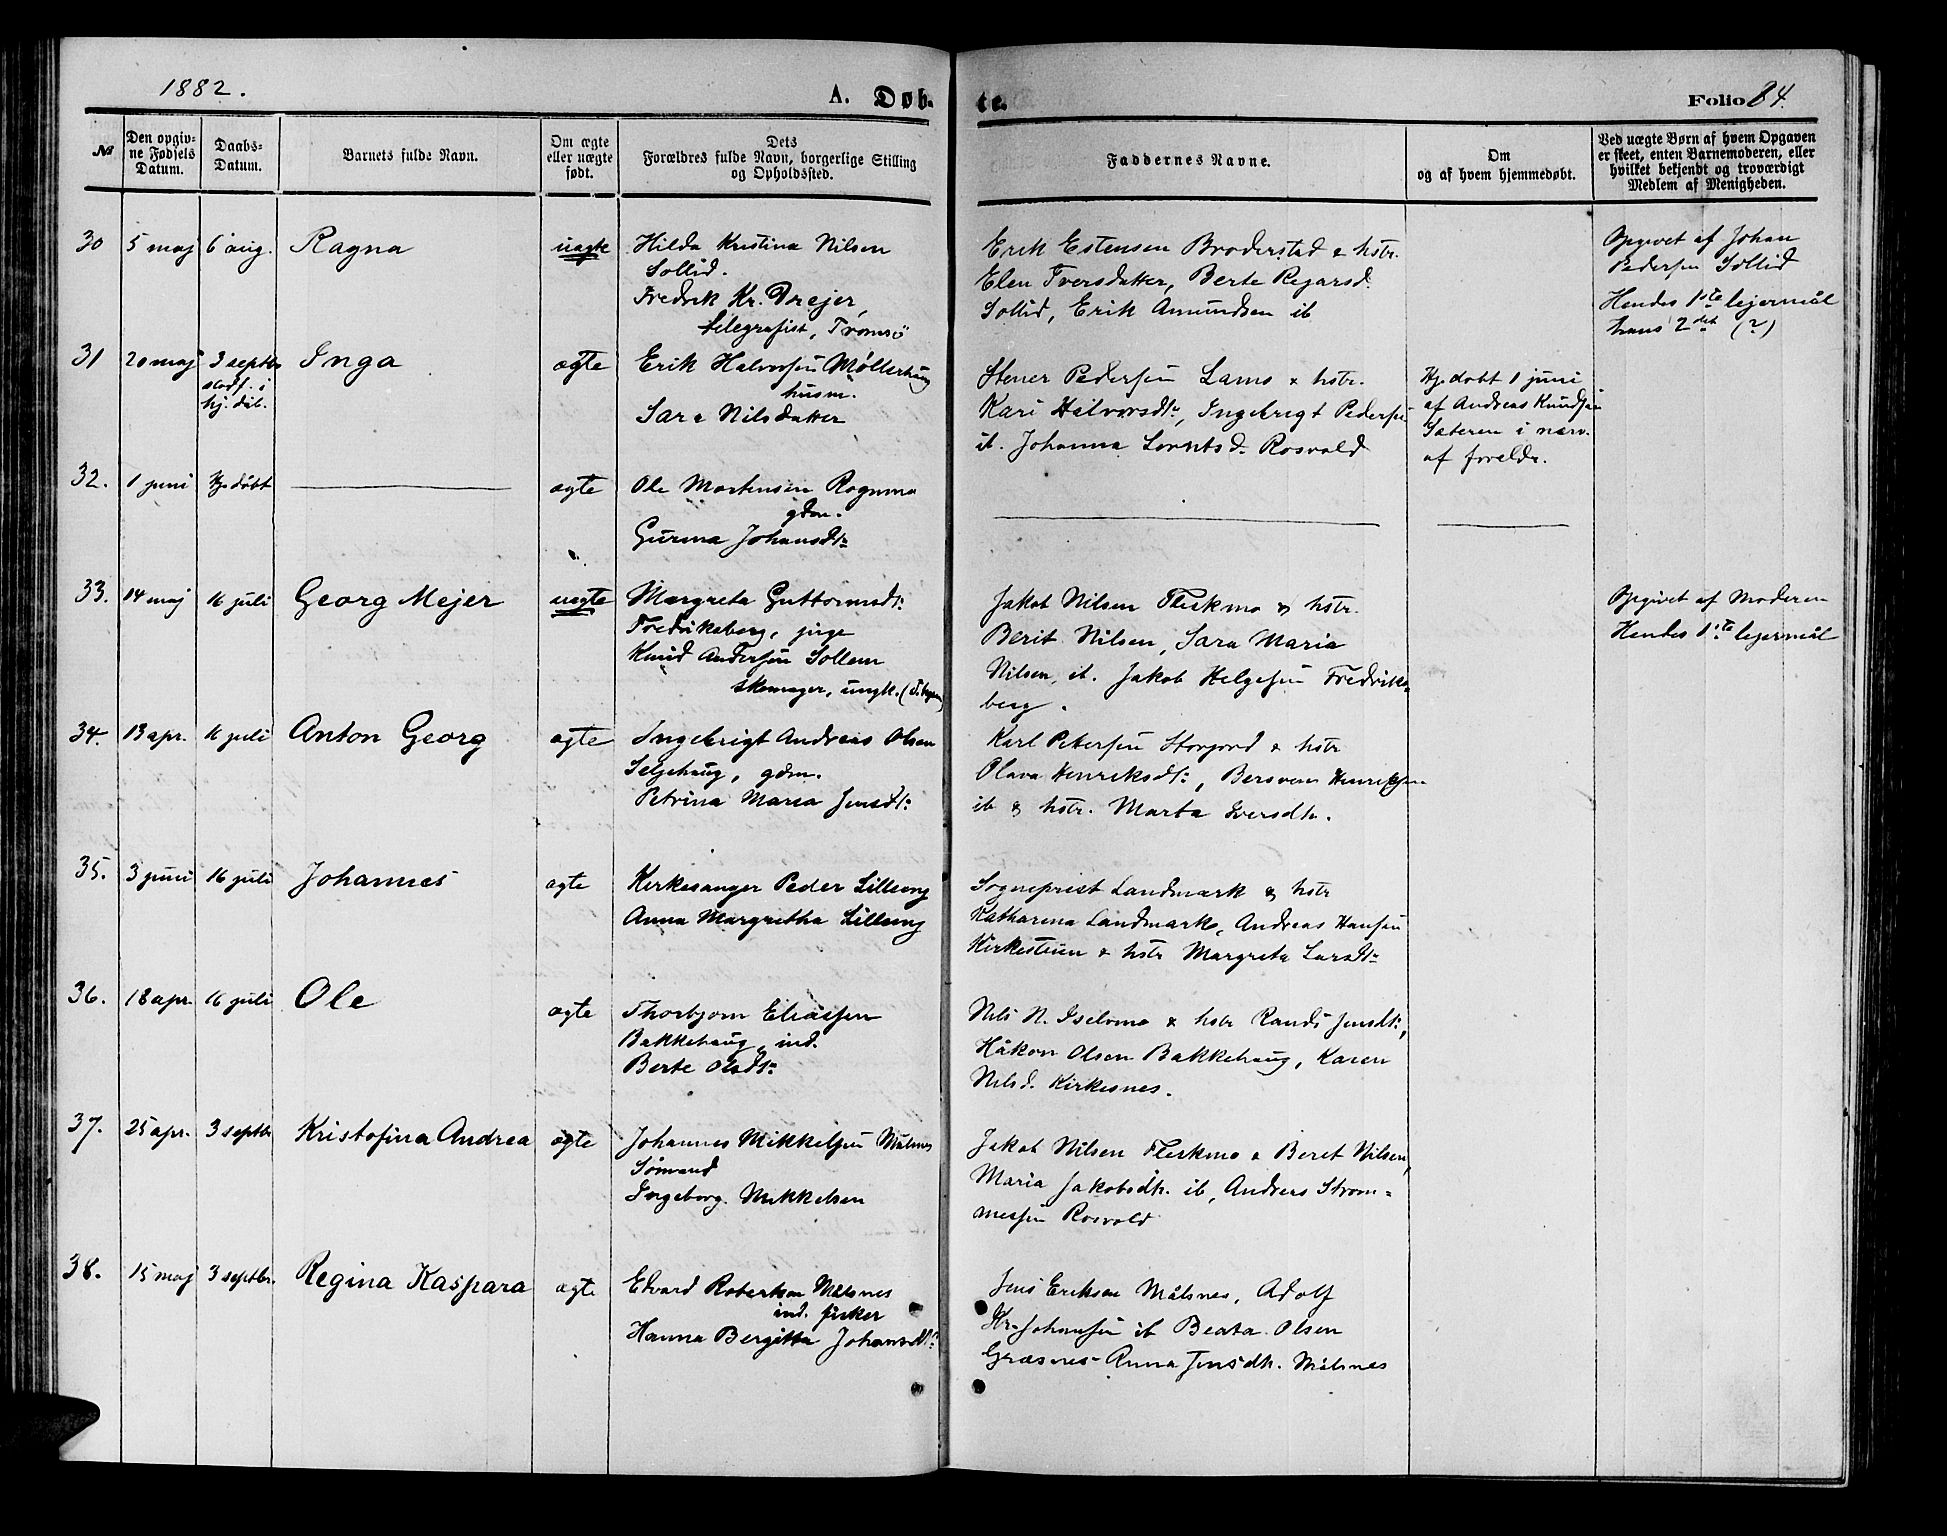 1882.
A. Døb-
te.
Folio 84.
№
Den opgiv-
ne Fødsels
Datum.
Daabs-
Datum.
Barnets fulde Navn.
Om ægte
eller uægte
født.
Dets
Forældres fulde Navn, borgerlige Stilling
og Opholdssted.
Faddernes Navne.
Om
og af hvem hjemmedøbt.
Ved uægte Børn af hvem Opgaven
er skeet, enten Barnemoderen, eller
hvilket bekjendt og troværdigt
Medlem af Menigheden.
30
5 maj
6 aug.
Ragna
uægte
Hilda Kristina Nilsen
Sollid.
Fredrik Kr. Drejer
telegrafist, Tromsö
Erik Estensen Broderstad & hstr.
Elen Iversdatter, Berte Regarsd.
Sollid, Erik Amundsen ib
Opgivet af Johan
Pedersen Sollid
Hendes 1ste lejermål
hans 2det (?)
31
20 maj
3 septbr
stadf. i
hj. dåb.
Inga
ægte
Erik Halvorsen Møllerhaug
husm.
Sara Nilsdatter
Stener Pedersen Lamo & hstr.
Kari Halvorsdtr, Ingebrigt Pedersen
ib. Johanna Lorntsd. Rosvold
Hj.døbt 1 juni
af Andreas Knudsen
Sæteren i nærv.
af foreldr.
32.
1 juni
Hj.døbt
ægte
Ole Mortensen Rognmo
gdm.
Gurina Johansdtr
33.
14 maj
16 juli
Georg Mejer
uægte
Margreta Guttormsdtr
Fredriksberg, pige
Knud Andersen Sollem
skomager, ungk.
Jakob Nilsen Fleskmo & hstr.
Berit Nilsen, Sara Maria
Nilsen, ib. Jakob Helgesen Fredriks-
berg.
Opgivet af Moderen
Hendes 1ste lejermål
34.
13 apr.
16 juli
Anton Georg
ægte
Ingebrigt Andreas Olsen
Seljehaug, gdm.
Petrina Maria Jensdtr
Karl Petersen Storjord & hstr
Olava Henriksdtr, Bersven Henriksen
ib & hstr. Marta Iversdtr.
35.
3 juni
16 juli
Johannes
ægte
Kirkesanger Peder Lilleeng
Anna Margretha Lilleeng
Sogneprest Landmark & hstr
Katharina Landmark, Andreas Hansen
Kirkesteen & hstr Margreta Larsdtr
36.
18 apr.
16 juli
Ole
ægte
Thorbjørn Eliassen
Bakkehaug, ind.
Berte Olsdtr
Nils N. Iselvmo & hstr Randi Jensdtr,
Håkon Olsen Bakkehaug, Karen
Nilsd. Kirkesnes.
37.
25 apr.
3 septbr
Kristofina Andrea
ægte
Johannes Mikkelsen Målsnes
Sömand
Ingeborg Mikkelsen
Jakob Nilsen Fleskmo & Beret Nilsen,
Maria Jakobsdtr. ib, Andreas Strom-
messen Rosvold
38.
15 maj
3 septbr.
Regina Kaspara
ægte
Edvard Robertsen Målsnes
ind. fisker
Hanna Bergitta Johansdtr
Jens Eriksen Målsnes, Adolf
Kr. Johansen ib Beata Olsen
Græsnes Anna Jensdtr. Målsnes